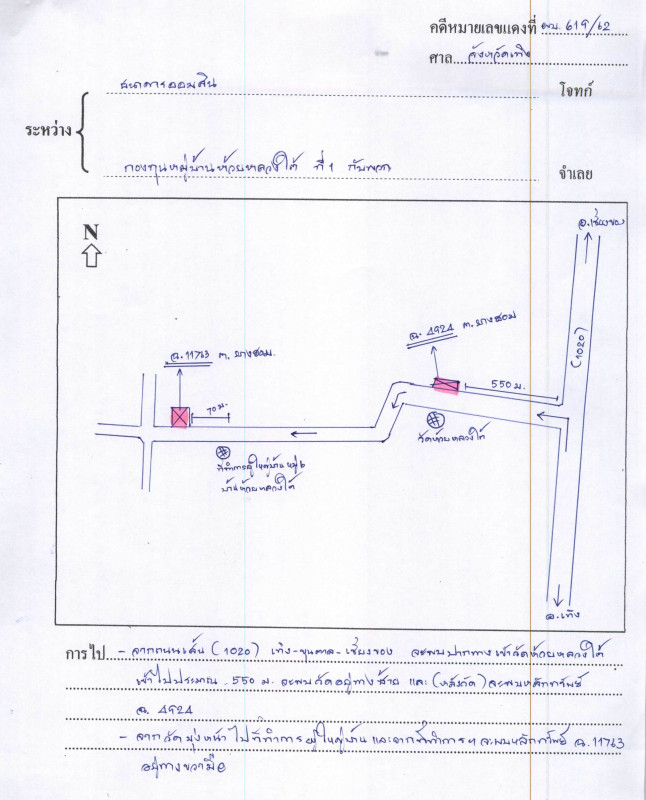 คดีหมายเลขแดงที่ ผบ. 619/62
ศาล จังหวัดเทิง
ธนาคารออมสิน โจทก์
ระหว่าง
กองทุนหมู่บ้านห้วยหลวงใต้ ที่ 1 กับพวก จำเลย
อ.เชียงของ
N
ฉ. 4924 ต. ยางฮอม
(1020)
ฉ. 11763 ต. ยางฮอม
550 ม.
70 ม.
วัดห้วยหลวงใต้
ที่ทำการผู้ใหญ่บ้าน หมู่ 6
บ้านห้วยหลวงใต้
อ.เทิง
การไป - จากถนนเส้น (1020) เทิง-ขุนตาล-เชียงของ จะพบปากทางเข้าวัดห้วยหลวงใต้
เข้าไปประมาณ 550 ม. จะพบวัดอยู่ทางซ้าย และ (หลังวัด) จะพบหลักทรัพย์
ฉ. 4924
- จากวัดมุ่งหน้าไปที่ทำการผู้ใหญ่บ้าน และจากที่ทำการฯ จะพบหลักทรัพย์ ฉ. 11763
อยู่ทางขวามือ